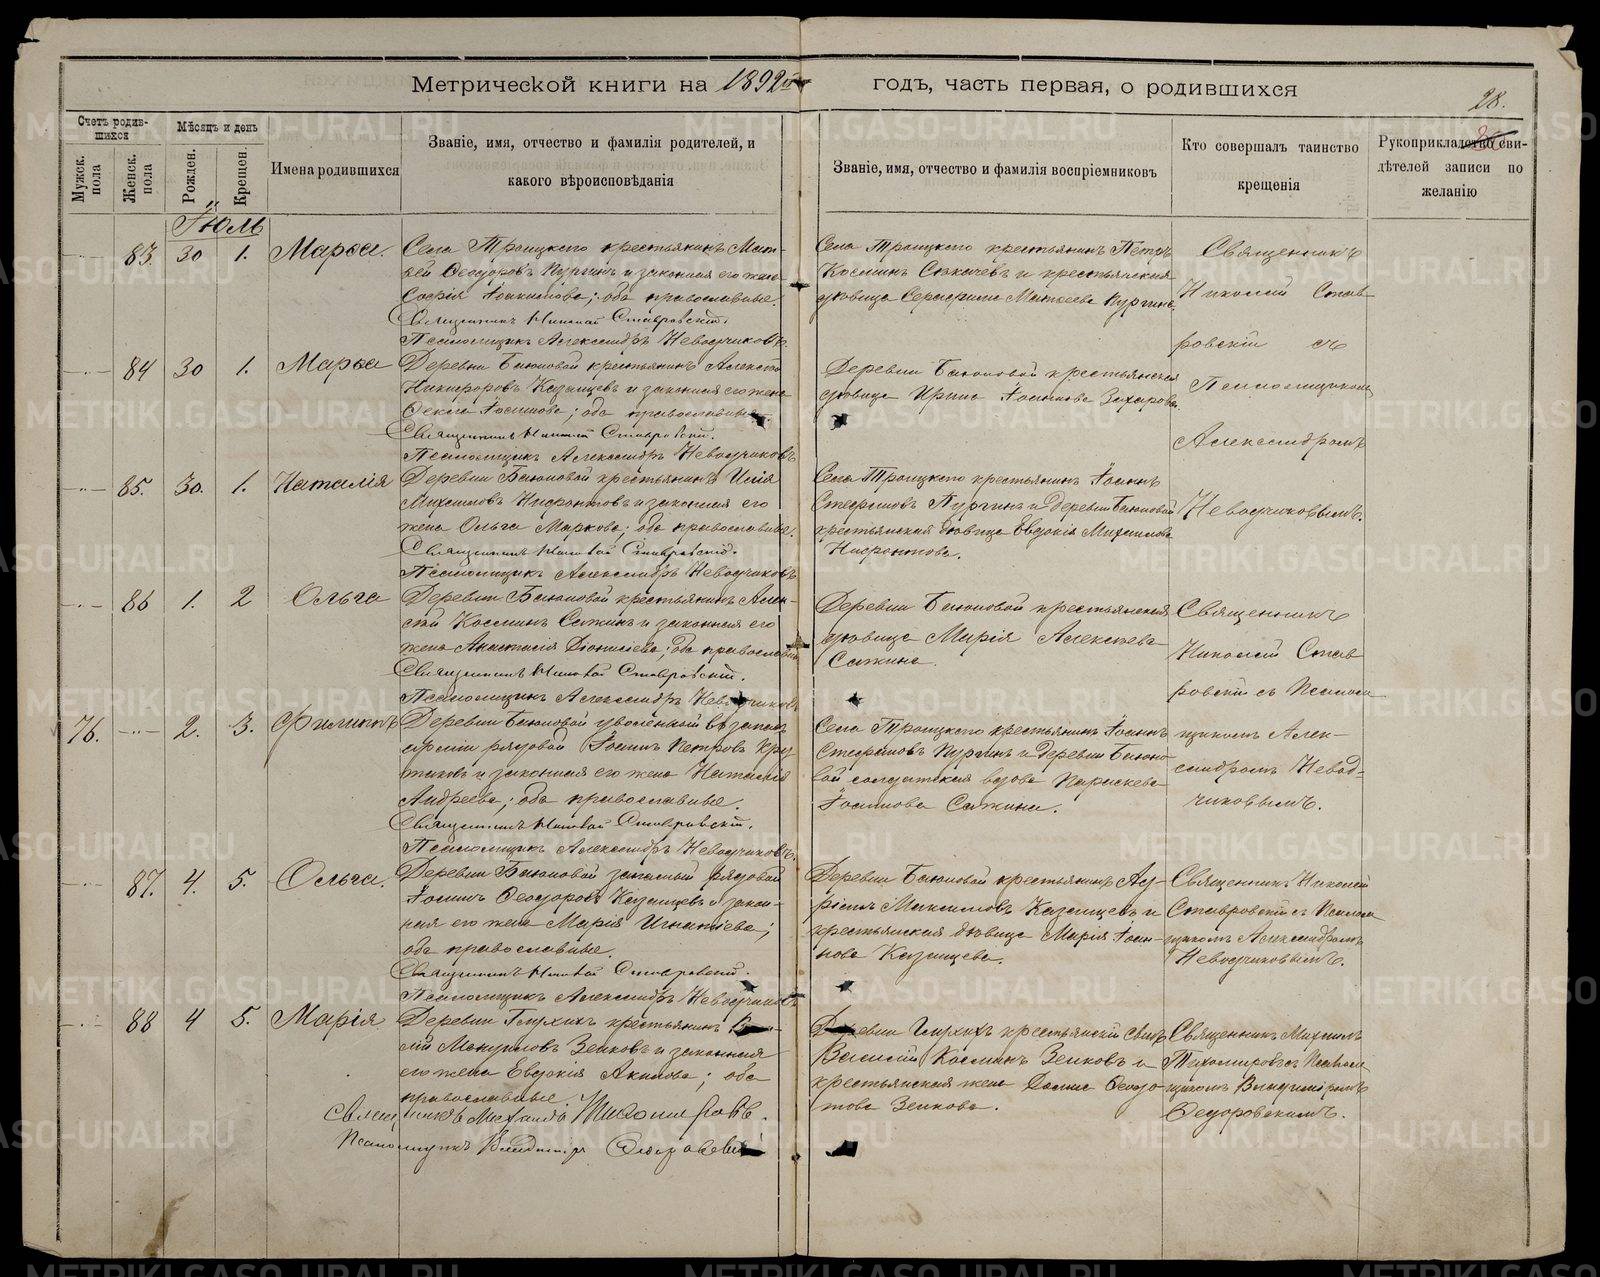 Метрической книги на 1892й годъ, часть первая, о родившихся
28.
Счетъ родив-
шихся
Мѣсяцъ и день
Мужск. пола
Женск. пола
Рожден.
Крещен.
Имена родившихся
Званіе, имя, отчество и фамилія родителей, и
какого вѣроисповѣданія
Званіе, имя, отчество и фамилія воспріемниковъ
Кто совершалъ таинство
крещенія
Рукоприкладство сви-
дѣтелей записи по
желанію
Іюль
83. 30 1. Марѳа.
Села Троицкаго крестьянинъ Мат-
ѳей Ѳеодоровъ Пургинъ и законная его жена
Софія Іоакимова; оба православные.
Священникъ Николай Ставровскій.
Псаломщикъ Александръ Неводчиковъ.
Села Троицкаго крестьянинъ Петръ
Косминъ Сюкачевъ и крестьянская
дѣвица Серафима Матѳеева Пургина.
Священникъ
Николай Став
ровскій съ
Псаломщикомъ
Александромъ
Неводчиковымъ.
84 30 1. Марѳа
Деревни Баюновой крестьянинъ Алексѣй
Никифоровъ Казанцевъ и законная его жена
Ѳекла Іоаннова; оба православные.
Священникъ Николай Ставровскій.
Псаломщикъ Александръ Неводчиковъ
Деревни Баюновой крестьянская
дѣвица Ирина Іоаннова Захарова.
85. 30. 1. Наталія
Деревни Баюновой крестьянинъ Илія
Михаиловъ Нифонтовъ и законная его
жена Ольга Маркова; оба православные.
Священникъ Николай Ставровскій.
Псаломщикъ Александръ Неводчиковъ
Села Троицкаго крестьянинъ Іоаннъ
Стефановъ Пургинъ и деревни Баюновой
крестьянская дѣвица Евдокія Михаилова
Нифонтова.
86 1. 2 Ольга
Деревни Баюновой крестьянинъ Алек-
сѣй Косминъ Сажинъ и законная его
жена Анастасія Діонисіева; оба православн
Священникъ Николай Ставровскій.
Псаломщикъ Александръ Неводчиковъ
Деревни Баюновой крестьянская
дѣвица Марія Алексѣева
Сажина.
Священникъ
Николай Став
ровскій съ Псалом
щикомъ Алек-
сандромъ Невод-
чиковымъ.
76. 2. 3. Филиппъ
Деревни Баюновой уволенный въ запасъ
арміи рядовой Іоаннъ Петровъ Кру
тиковъ и законная его жена Наталія
Андреева; оба православные.
Священникъ Николай Ставровскій.
Псаломщикъ Александръ Неводчиковъ.
Села Троицкаго крестьянинъ Іоаннъ
Стефановъ Пургинъ и деревни Баюно
вой солдатская вдова Параскева
Іоаннова Сажина.
87. 4. 5. Ольга.
Деревни Баюновой запасный рядовой
Іоаннъ Ѳеодоровъ Казанцевъ и закон-
ная его жена Марія Игнатіева;
оба православные.
Священникъ Николай Ставровскій.
Псаломщикъ Александръ Неводчиковъ
Деревни Баюновой крестьянинъ Ад-
ріанъ Максимовъ Казанцевъ и
крестьянская дѣвица Марія Іоан-
нова Казанцева.
Священникъ Николай
Ставровскій съ Псалом
щикомъ Александромъ
Неводчиковымъ.
88 4 5. Марія
Деревни Глухихъ крестьянинъ
лій Зенковъ и законная
его жена Евдокія Акилова; оба
православные.
Священникъ Михаилъ Тихомировъ.
Псаломщикъ Владиміръ Ѳедоровскій
Деревни Глухихъ крестьянскій сынъ
Василій Косминъ Зенковъ и
крестьянская жена Ѳеодо
това Зенкова.
Священникъ Михаилъ
Тихомировъ съ Псалом
щикомъ Владиміромъ
Ѳедоровскимъ.
METRIKI.GASO-URAL.RU